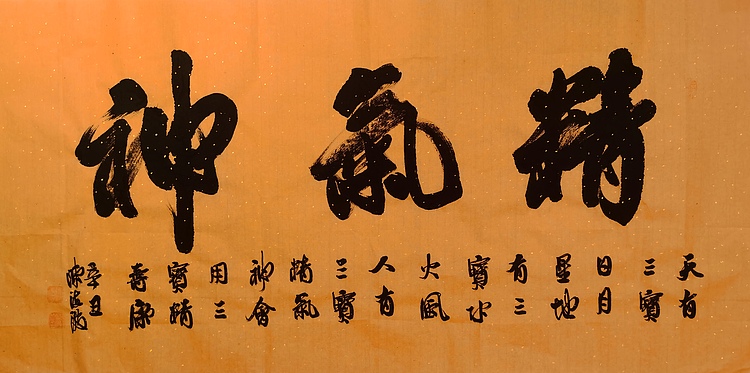 精氣神
天有
三寶
日月
星地
有三
寶水
火風
人有
三寶
精氣
神會
用三
寶精
壽康
辛丑
陳